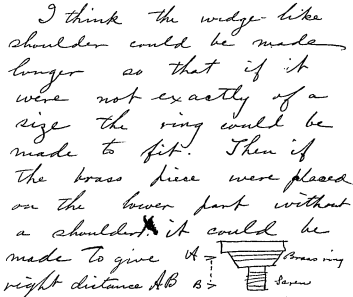 I think the wedge-like
shoulder could be made
longer so that if it
were not exactly of a
size the ring could be
made to fit. Then if
the brass piece were placed
on the lower part without
a shoulder it could be
made to give A Brass ring
right distance AB B Screw